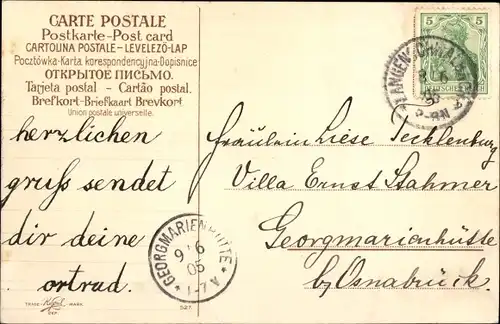 CARTE POSTALE
Postkarte-Post card
CARTOLINA POSTALE-LEVELEZŐ-LAP
Pocztówka-Karta korespondencyjna-Dopisnice
ОТКРЫТОЕ ПИСЬМО.
Tarjeta postal - Cartão postal.
Brefkort-Briefkaart Brevkort.
Union postale universelle.
herzlichen
gruss sendet
dir deine
ortrud.
5 5
DEUTSCHES REICH
LANGENSCHWALBACH
8 6
05
5-8N
Fräulein Liese Tecklenburg
Villa Ernst Stahmer
Georgmarienhütte
b/ Osnabrück.
GEORGMARIENHÜTTE
9 6
05
1-7 V
TRADE MARK
DEP.
527.